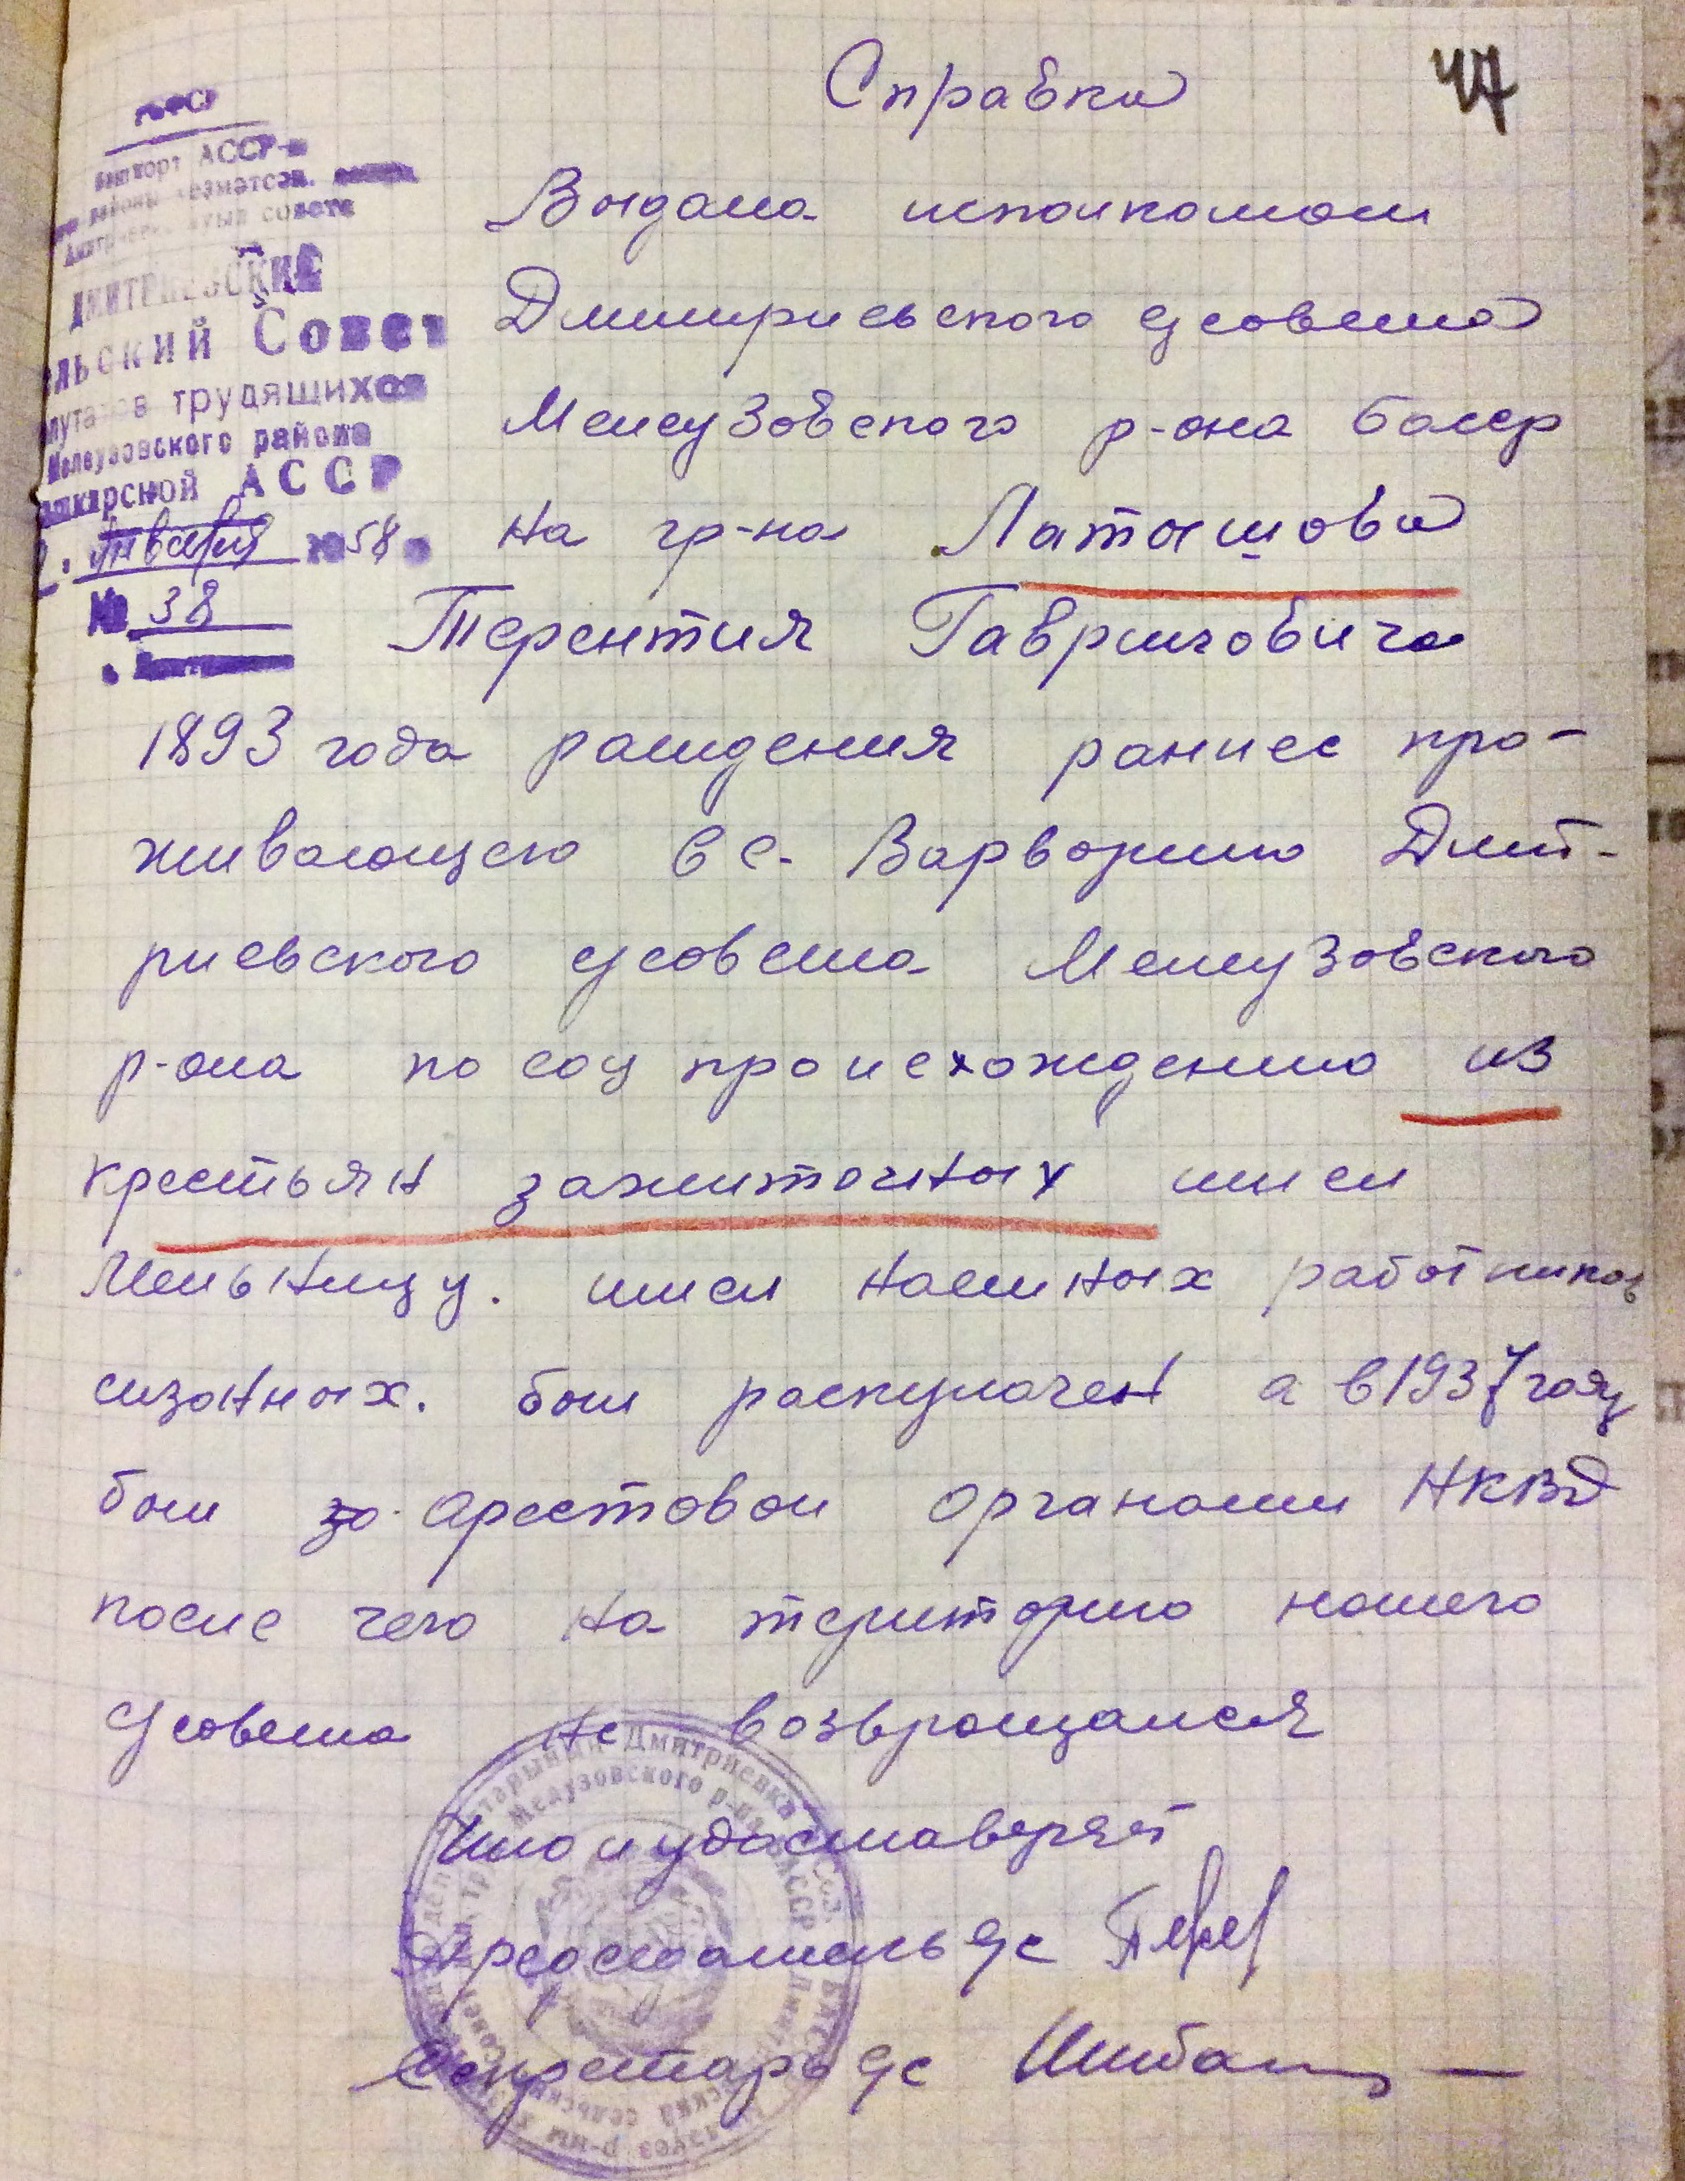 Справка
47
РСФСР
Башкорт АССР-ы
совета
ДМИТРИЕВСКИЙ
льский Совет
путатов трудящихся
Мелеузовского района
ашкирской АССР
января 1958 г
№ 38
Выдана исполкомом
Дмитриевского с/совета
Мелеузовского р-она БАССР
на гр-на Латышова
Терентия Гавриловича
1893 года раждения раниее про-
живающего в с. Варварино Дмит-
риевского с/совета Мелеузовского
р-она по соц происхождению из
крестьян зажиточных имел
Мельницу. имел наемных работников
сизонных. был раскулачен а в 1937 году
был за. арестован органами НКВД
после чего на територию нашего
с/совета не возвращался
что и удоставеряет
Председатель с/с
Секретарь с/с